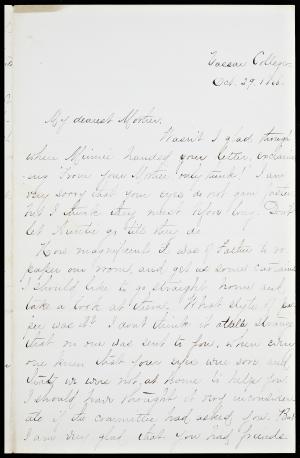 Vassar College,
Oct. 29, 1866.
My dearest Mother,
Wasn't I glad, though
when Minnie handed your letter, exclaim-
ing "From your Mother, only think!" I am
very sorry that your eyes do not gain faster
but I think they must before long. Don't
let Auntie go till they do.
How magnificent it was of Father to re-
paper our room, and get us some curtains
I should like to go straight home and
take a look at them. What style of pa-
per was it? I don't think it at all strange
that no one was sent to you, when every
one knew that your eyes were sore and
that we were not at home to help you.
I should have thought it very inconsider-
ate if the committee had asked you. But
I am very glad that you had friends